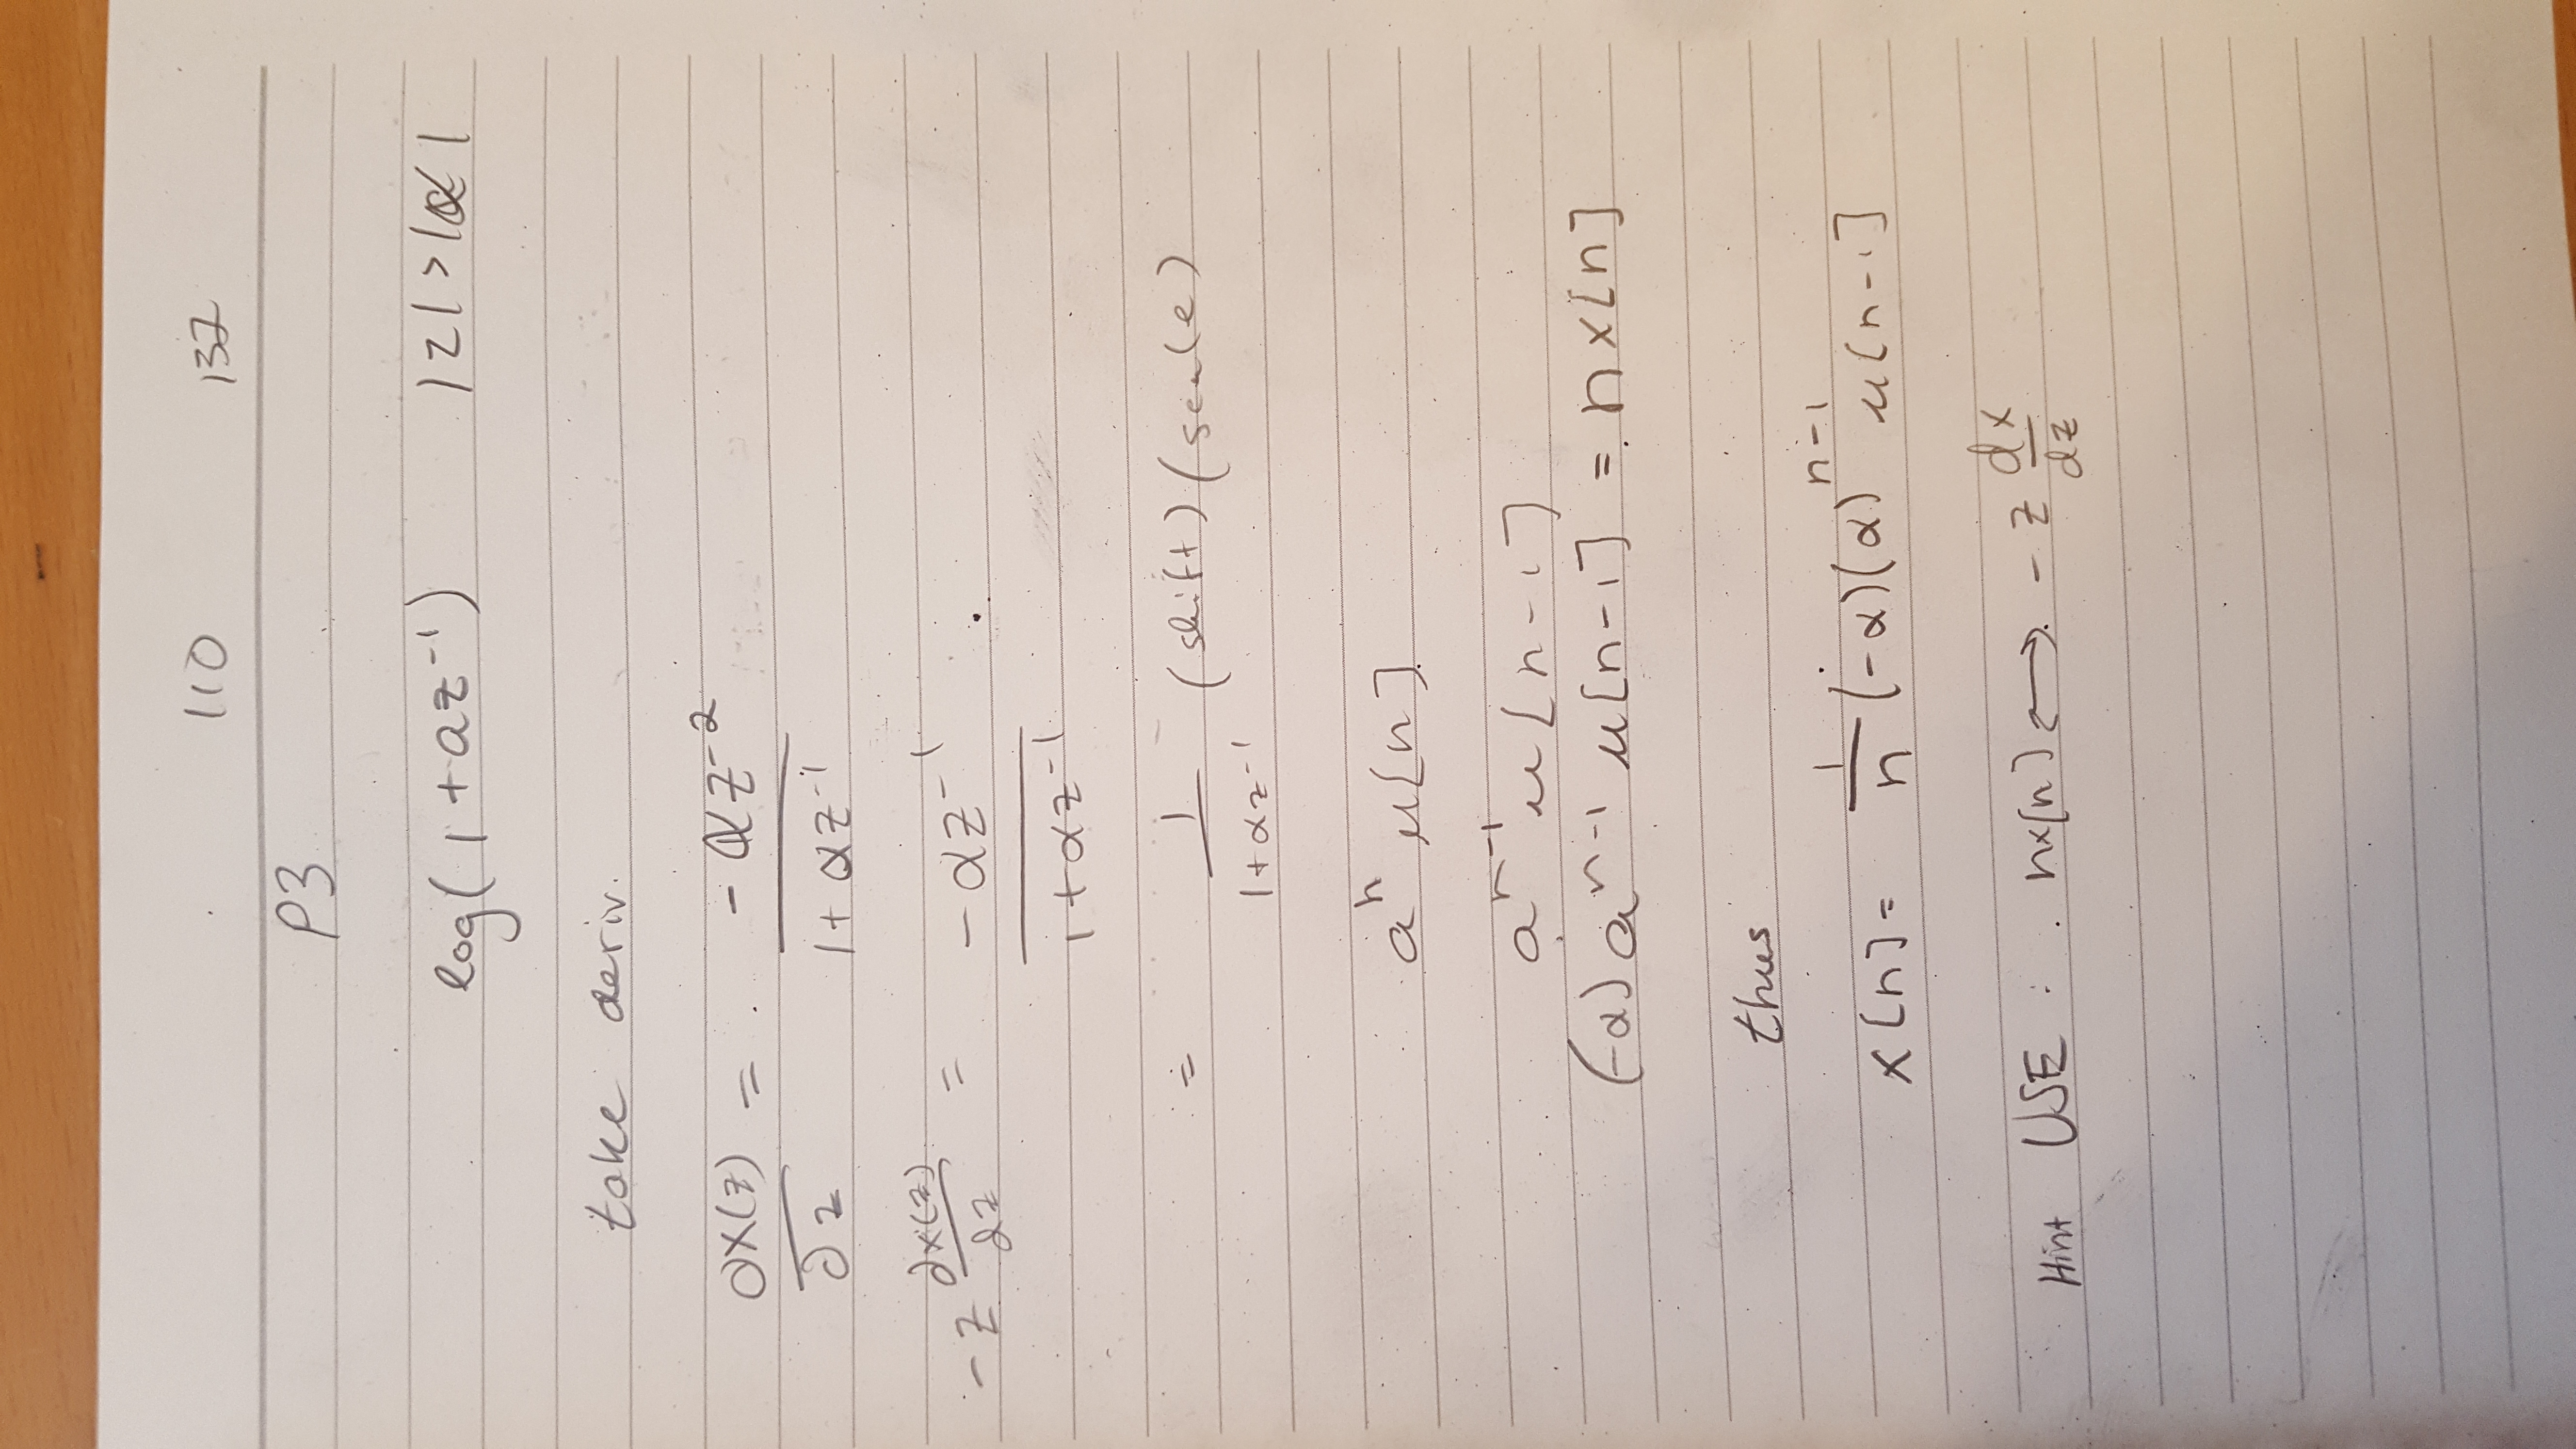 110 132
P3
log(1+az⁻¹) |z|>|α|
take deriv.
∂X(z)/∂z = -αz⁻²/1+αz⁻¹
-z ∂x(z)/∂z = -αz⁻¹/1+αz⁻¹
= 1/1+αz⁻¹ (shift)(scale)
aⁿ u[n]
aⁿ⁻¹ u[n-1]
(-α)aⁿ⁻¹ u[n-1] = nx[n]
thus
x[n] = 1/n (-α)(α)ⁿ⁻¹ u[n-1]
Hint USE : nx[n] ⟷ -z dx/dz